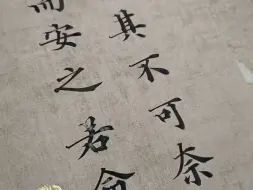 其不可奈
而安之若命